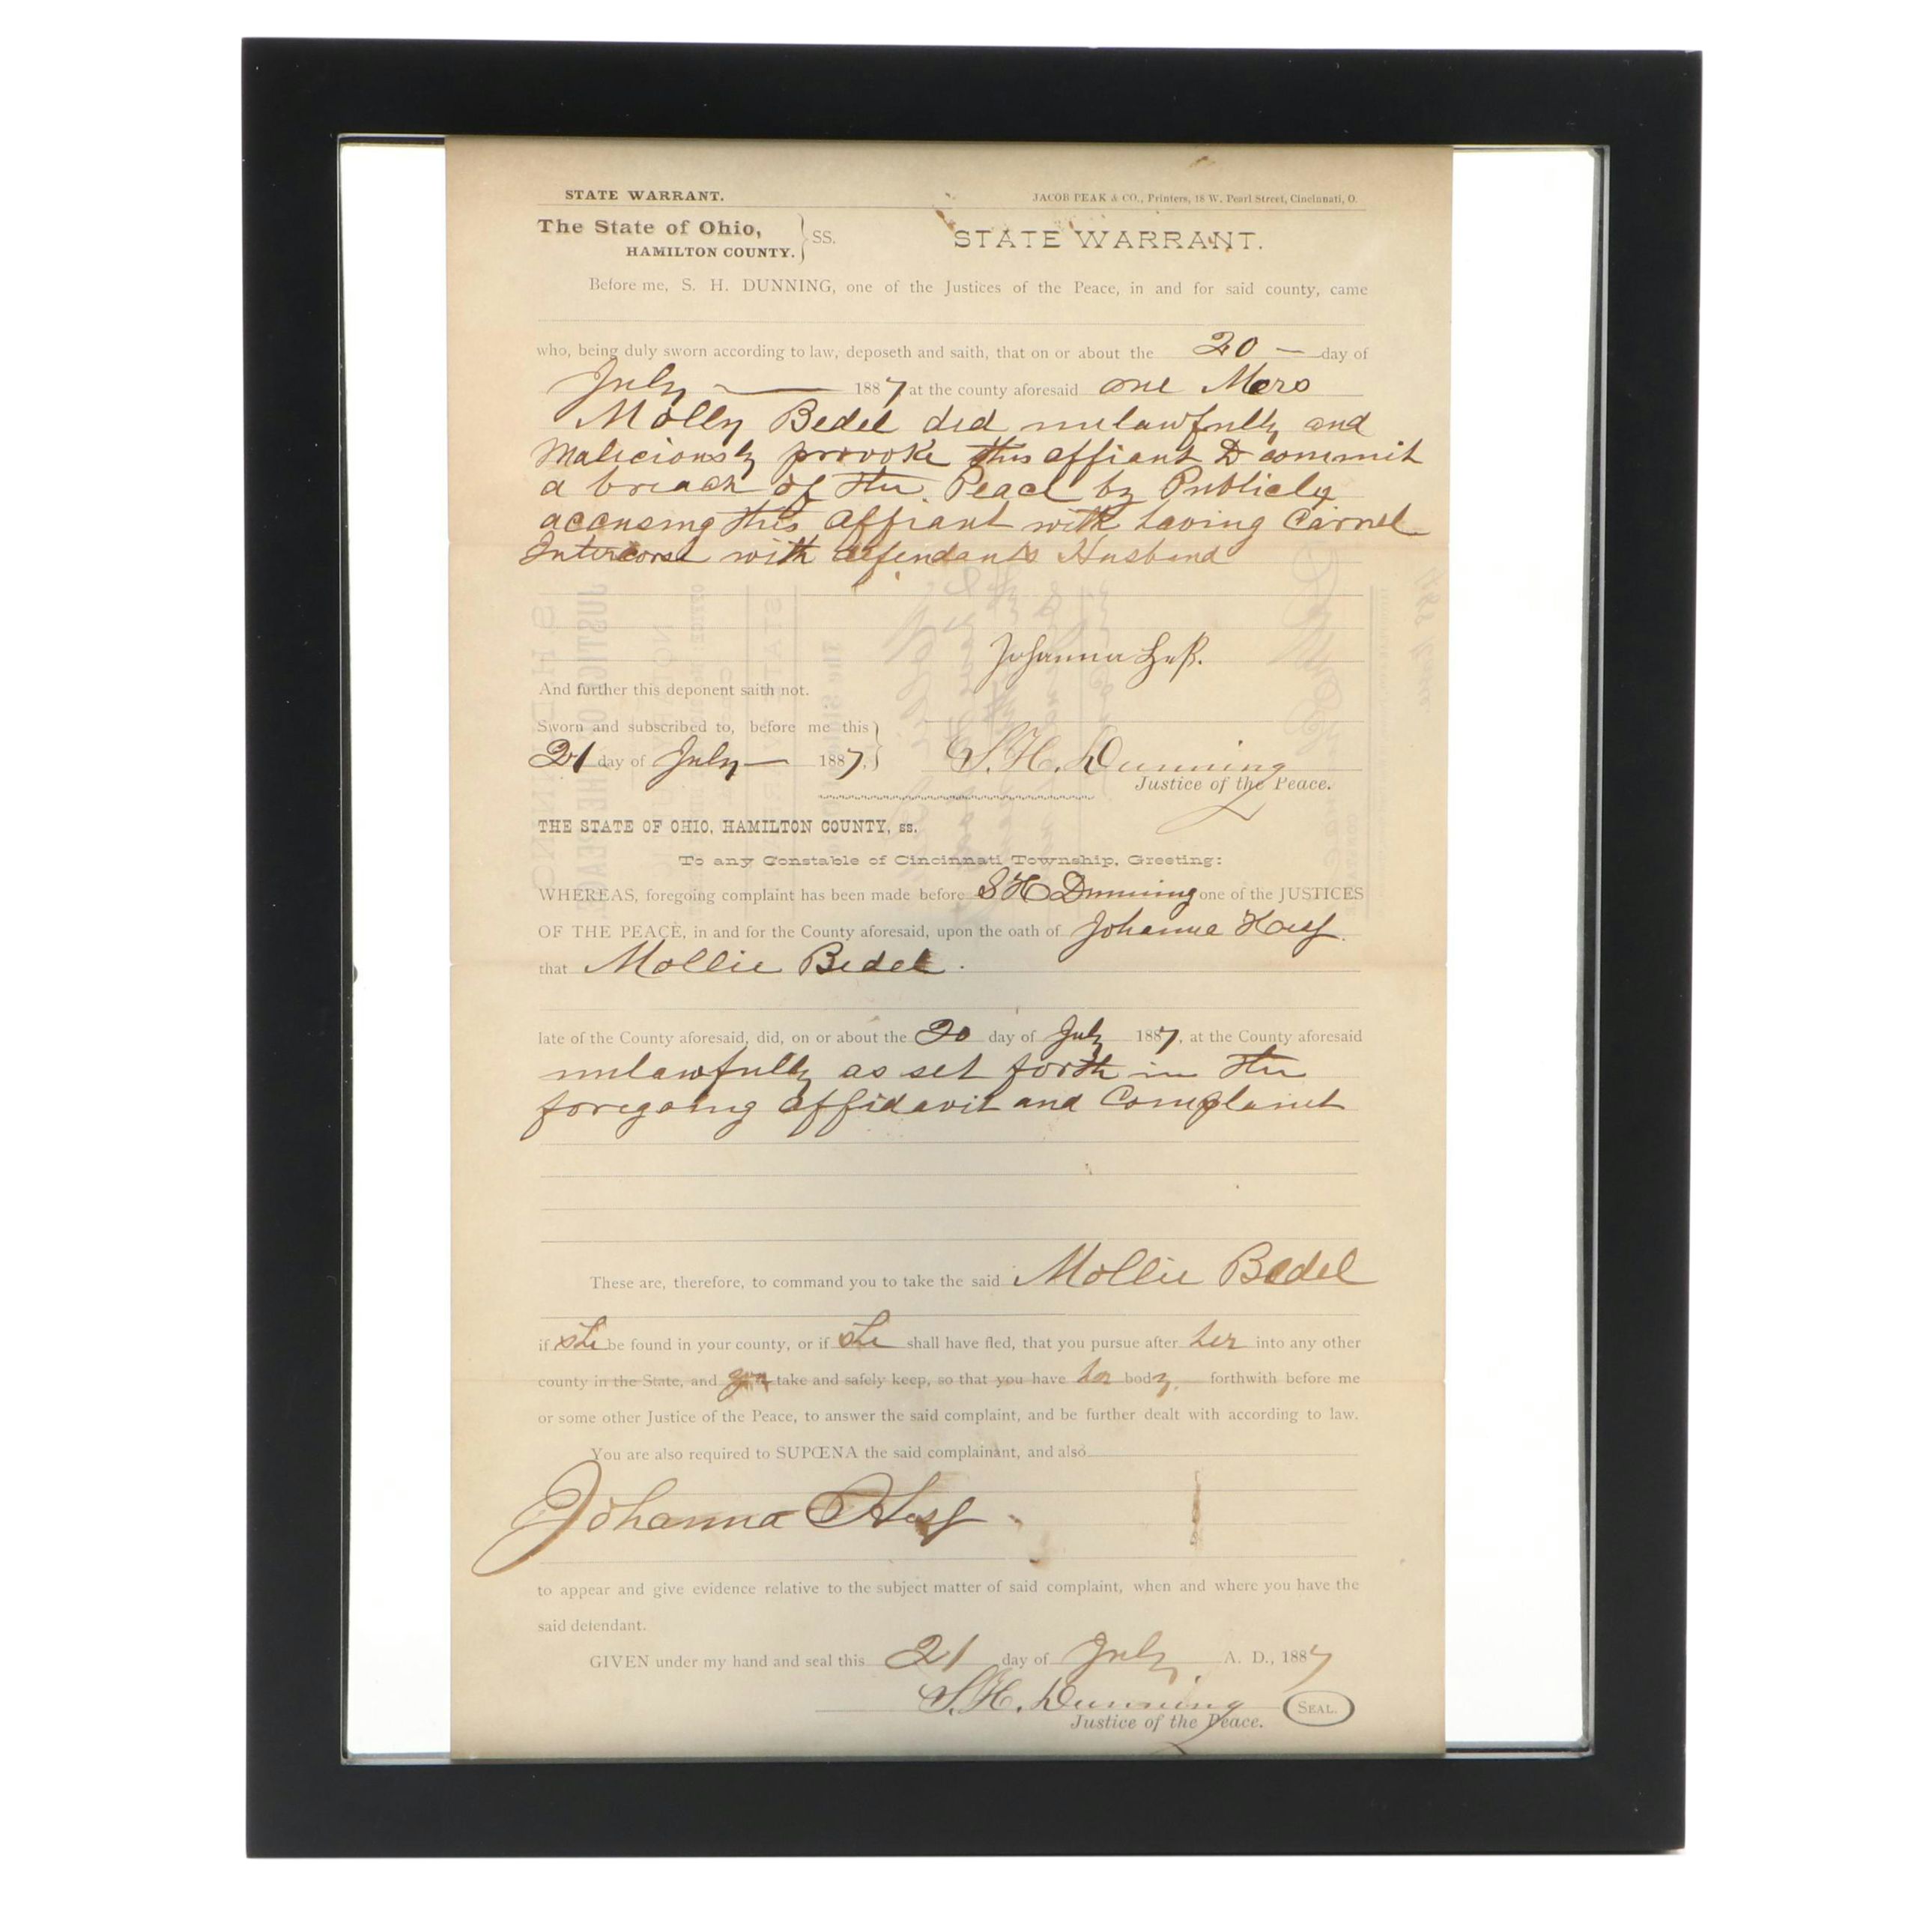 STATE WARRANT. JACOB PEAK & CO., Printers, 18 W. Pearl Street, Cincinnati, O.
The State of Ohio, HAMILTON COUNTY. } SS. STATE WARRANT.
Before me, S. H. DUNNING, one of the Justices of the Peace, in and for said county, came
who, being duly sworn according to law, deposeth and saith, that on or about the 20 — day of
July — 1887 at the county aforesaid one Mers
Molly Bedel did unlawfully and
Maliciously provoke this affiant to commit
a breach of the Peace by Publicly
accusing this affiant with having Carnel
Intercorse with defendants Husband
Johanna
And further this deponent saith not.
Sworn and subscribed to, before me this }
21 day of July — 1887, } S. H. Dunning
Justice of the Peace.
THE STATE OF OHIO, HAMILTON COUNTY, ss.
To any Constable of Cincinnati Township, Greeting:
WHEREAS, foregoing complaint has been made before S H Dunning one of the JUSTICES
OF THE PEACE, in and for the County aforesaid, upon the oath of Johanna Hess
that Mollie Bedel.
late of the County aforesaid, did, on or about the 20 day of July 1887, at the County aforesaid
unlawfully as set forth in the
foregoing affidavit and Complaint
These are, therefore, to command you to take the said Mollie Bedel
if she be found in your county, or if she shall have fled, that you pursue after her into any other
county in the State, and take and safely keep, so that you have her body forthwith before me
or some other Justice of the Peace, to answer the said complaint, and be further dealt with according to law.
You are also required to SUPŒNA the said complainant, and also
Johanna Hess
to appear and give evidence relative to the subject matter of said complaint, when and where you have the
said defendant.
GIVEN under my hand and seal this 21 day of July A. D., 1887
S. H. Dunning SEAL.
Justice of the Peace.